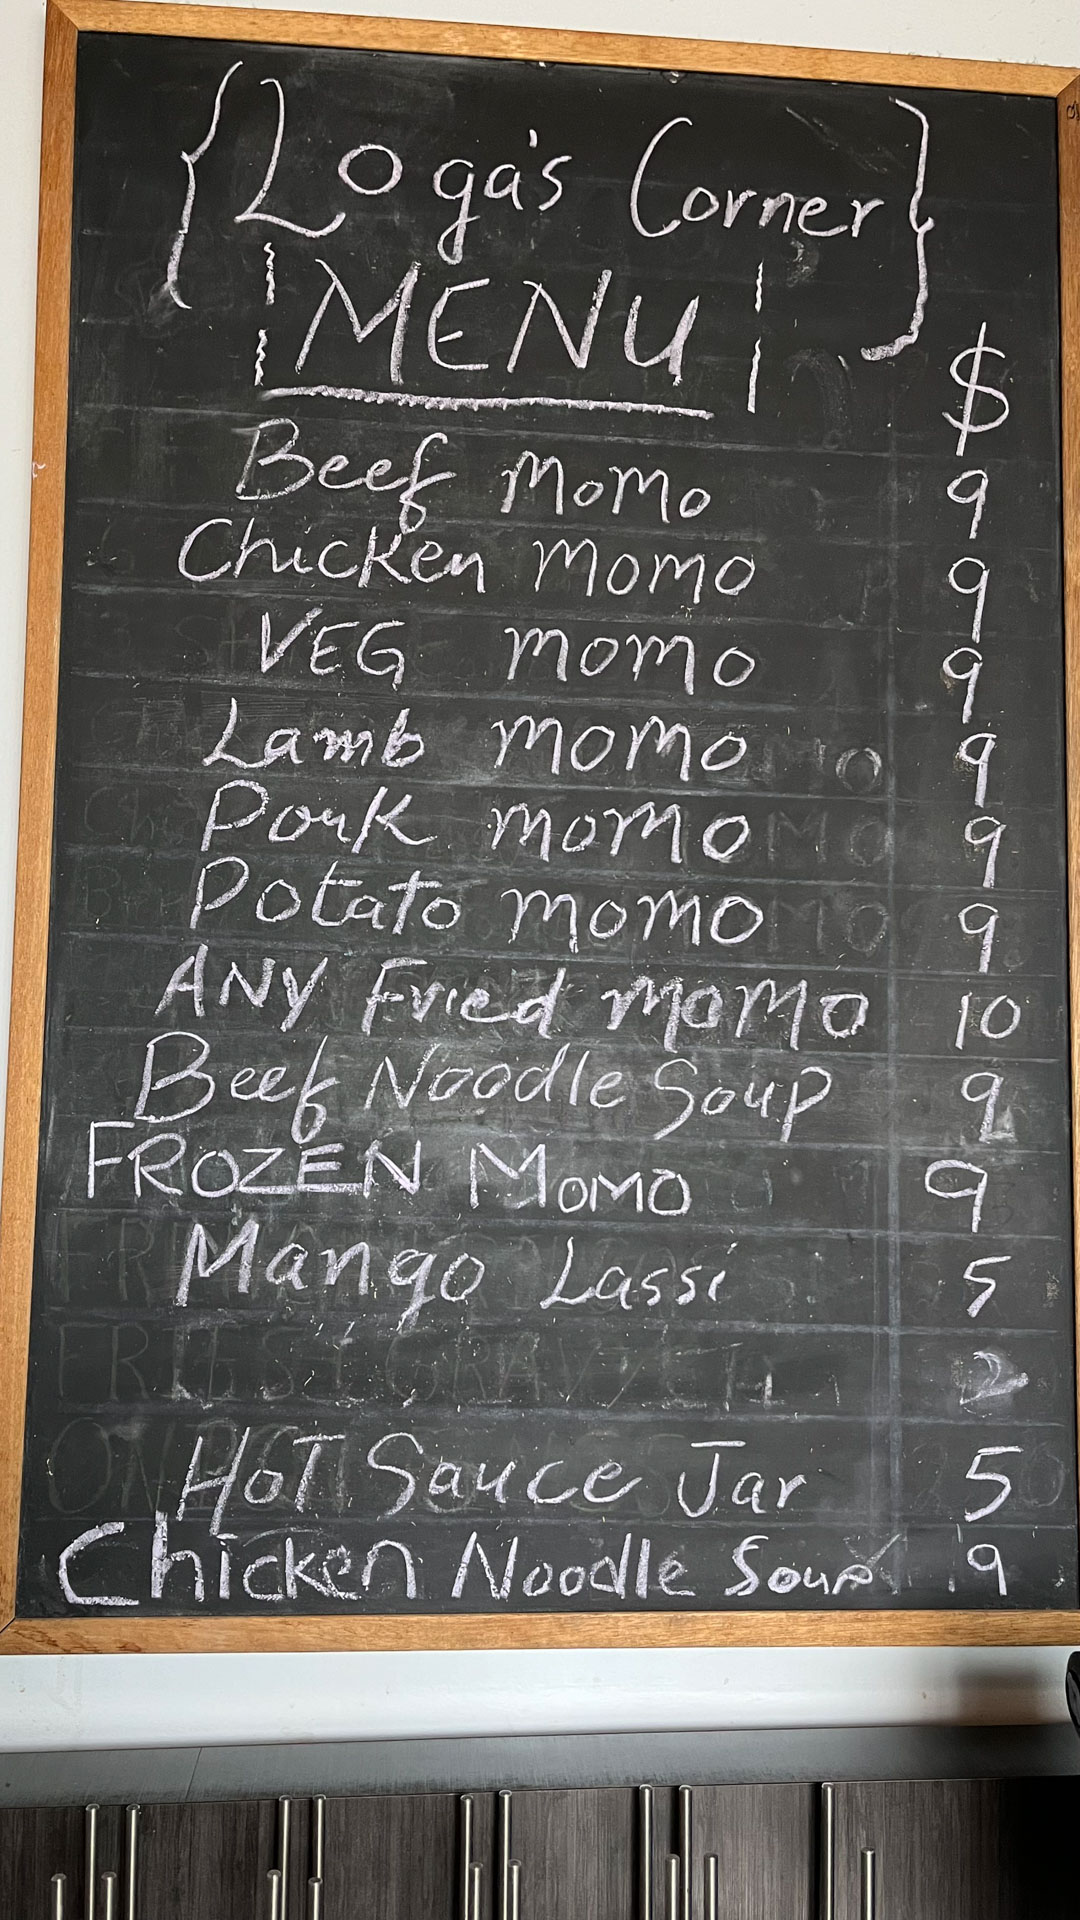 {Loga's Corner}
MENU
$
Beef MoMo 9
Chicken MoMo 9
VEG MoMo 9
Lamb MoMo 9
Pork MoMo 9
Potato MoMo 9
ANY Fried MoMO 10
Beef Noodle Soup 9
FROZEN MoMO 9
Mango Lassi 5
2
HOT Sauce Jar 5
Chicken Noodle Soup 9